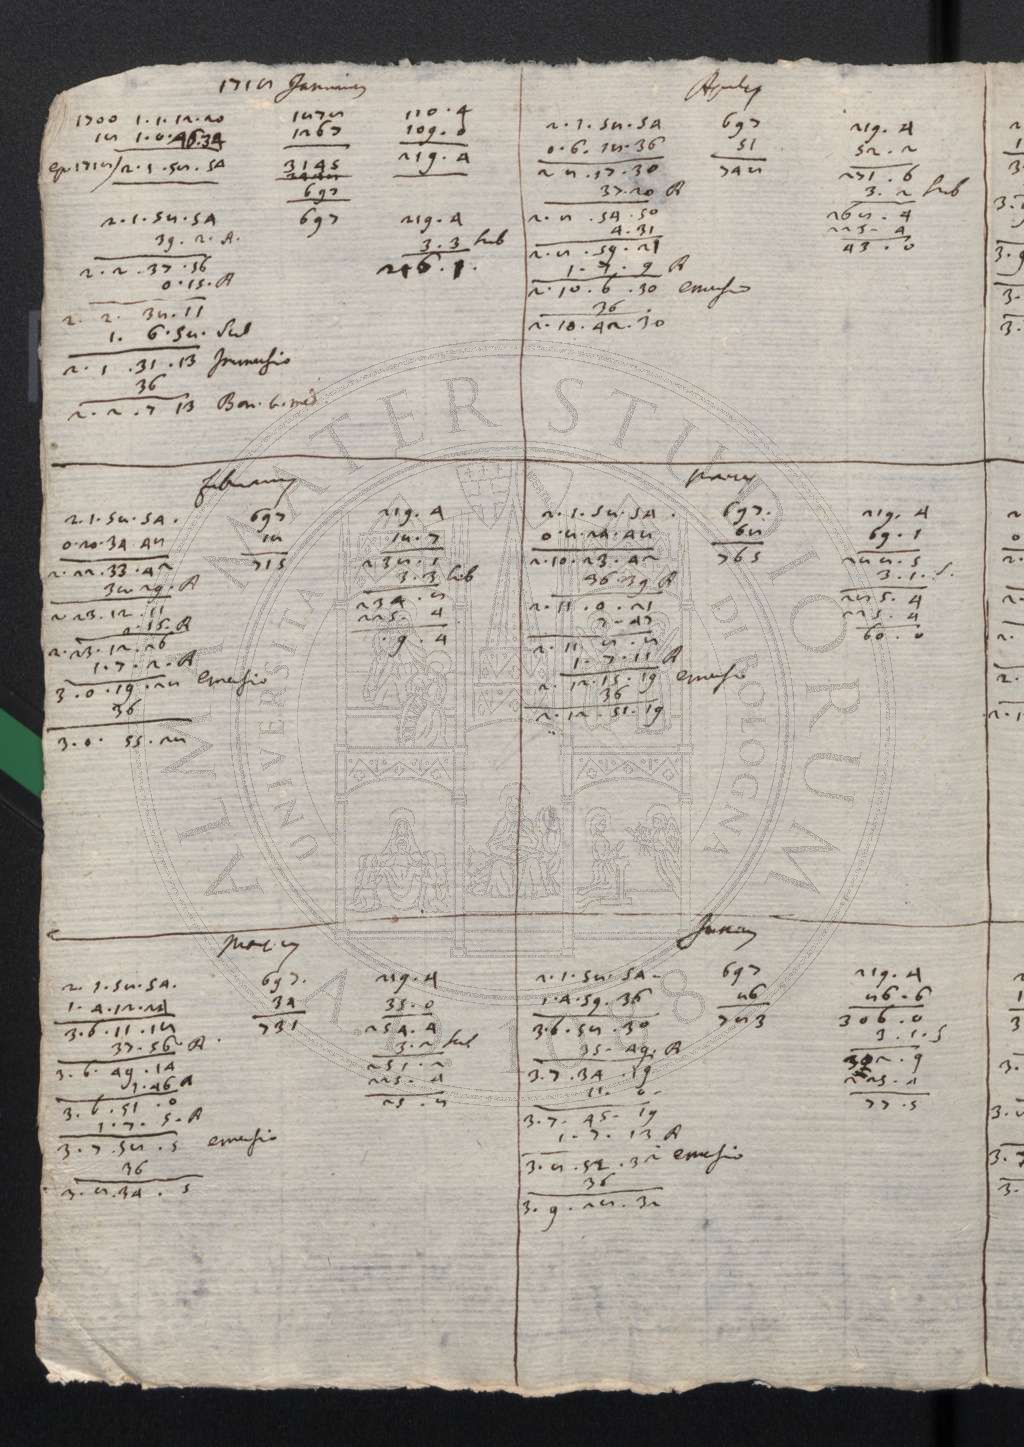 1718 Januarius
1700 1.1.12.20 1878 110.4
18 1.0.46.34 1267 109.0
ep. 1718 2.1.58.54 3145 219.4
2448
697
2.1.58.54 697 219.4
39.2.A. 3.3 Sub
2.2.37.56 216.1.
0.15.A
2.2.38.11
1.6.58. Sub
2.1.31.13 Immersio
36
2.2.7.13 Bon.
Aprilis
2.1.58.54 697 219.4
0.6.18.36 51 52.2
2.8.17.30 748 271.6
37.20 A 3.2 Sub
2.8.54.50 268.4
4.31 225.4
2.8.59.21 43.0
1.7.9 A
2.10.6.30 emersio
36
2.10.42.30
februarius
2.1.58.54. 697 219.4
0.20.34.48 18 18.7
2.22.33.42 715 238.1
38.29.A 3.3 Sub
2.23.12.11 234.8
0.15.A 225.4
2.23.12.26 9.4
1.7.2.A
3.0.19.28 emersio
36
3.0.55.28
Martius
2.1.58.54. 697. 219.4
0.8.24.48 68 69.1
2.10.23.42 765 288.5
36.39 A 3.1.S.
2.11.0.21 285.4
7.47 225.4
2.11.8.8 60.0
1.7.11 A
2.12.15.19 emersio
36
2.12.51.19
Majus
2.1.58.54. 697. 219.4
1.4.12.24 34 35.0
3.6.11.18 731 254.4
37.56.A. 3.2 Sub
3.6.49.14 251.2
1.46 A 225.4
3.6.51.0 25.8
1.7.5.A
3.7.58.5 emersio
36
3.8.34.5
Junius
2.1.58.54 697 219.4
1.4.59.36 86 86.6
3.6.58.30 783 306.0
35.49.A 3.1.S
3.7.34.19 302.9
11.0 225.4
3.7.45.19 77.5
1.7.13 A
3.8.52.32 emersio
36
3.9.28.32
ALMA MATER STUDIORUM
UNIVERSITÀ DI BOLOGNA
A.D. 1088